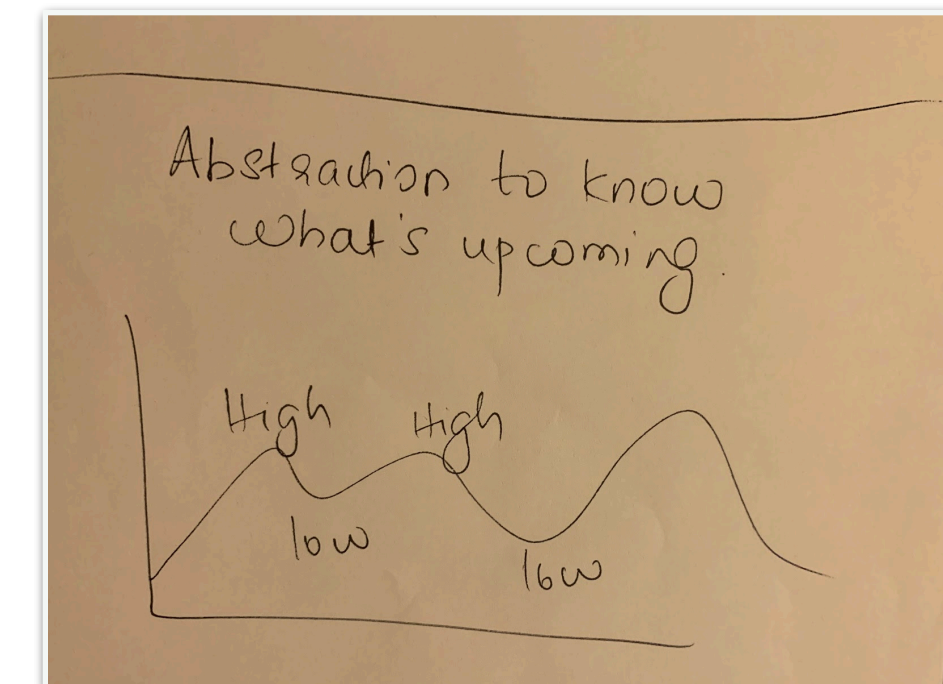 Abstraction to know
what's upcoming.
High
High
low
low